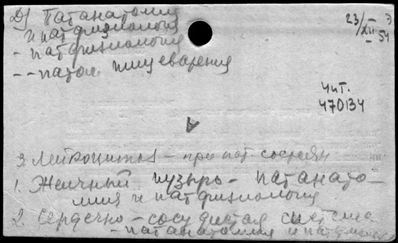 Д) Патанатомия
и патфизиология
- патфизиология
-- патол. пищеварения
23/XII 54
Чит.
470134
3. Лейкоцитоз - при пат. состоян
1. Желчный пузырь - патанато-
мия и патфизиология
2. Сердечно-сосудистая система
- патанатомия и